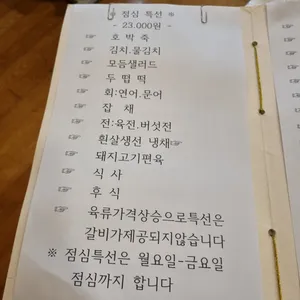 ※ 점심 특선 ※
- 23.000원 -
☞ 호 박 죽
☞ 김치.물김치
☞ 모듬샐러드
☞ 두 텁 떡
☞ 회:연어.문어
☞ 잡 채
☞ 전:육전.버섯전
☞ 흰살생선 냉채☞
☞ 돼지고기편육
☞ 식 사
☞ 후 식
☞ 육류가격상승으로특선은
갈비가제공되지않습니다
※ 점심특선은 월요일-금요일
점심까지 합니다